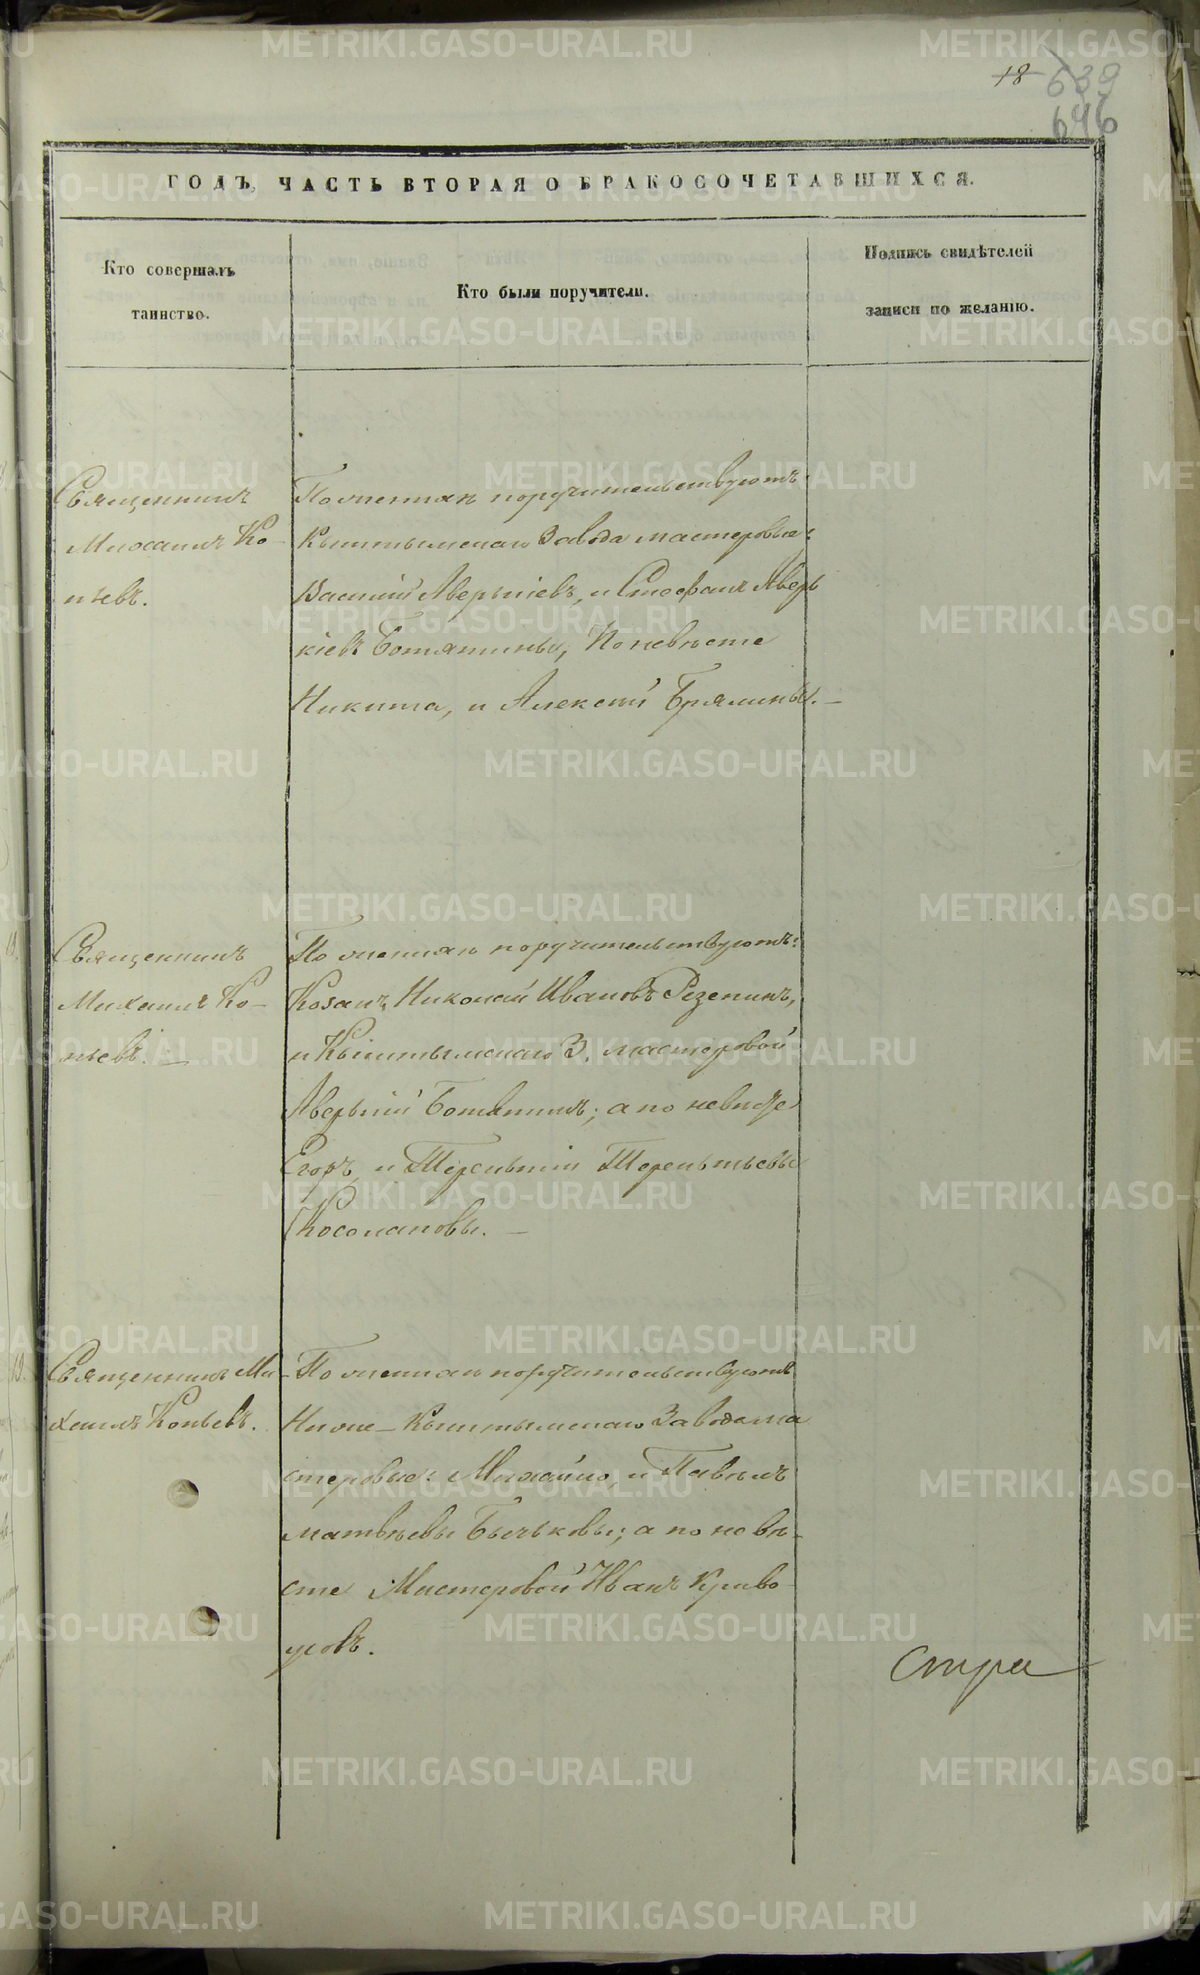 18 639
646
ГОДЪ, ЧАСТЬ ВТОРАЯ О БРАКОСОЧЕТАВШИХСЯ.
Кто совершалъ
таинство.
Кто были поручители.
Подпись свидѣтелей
записи по желанію.
Священникъ
Михаилъ Ко-
пьевъ.
По женихѣ поручительствуютъ
Кыштымскаго Завода мастеровые:
Василій Аверькіевъ, и Стефанъ Аверь
кіевъ Ботятины, По невѣсте
Никита, и Алексѣй Брялины. —
Священникъ
Михаилъ Ко-
пьевъ. —
По женихѣ поручительствуютъ:
Козакъ Николай Ивановъ Резепинъ,
и Кыштымскаго З. мастеровой
Аверькій Ботятинъ; а по невѣсте
Егоръ, и Терентій Терентьевы
Косолаповы. —
Священникъ Ми-
хаилъ Копьевъ.
По женихѣ поручительствуютъ
Нижне-Кыштымскаго Завода ма
стеровые: Михайло, и Павелъ
Матвѣевы Бычьковы; а по невѣ-
сте Мастеровой Иванъ Криво
уховъ.
Стра
METRIKI.GASO-URAL.RU